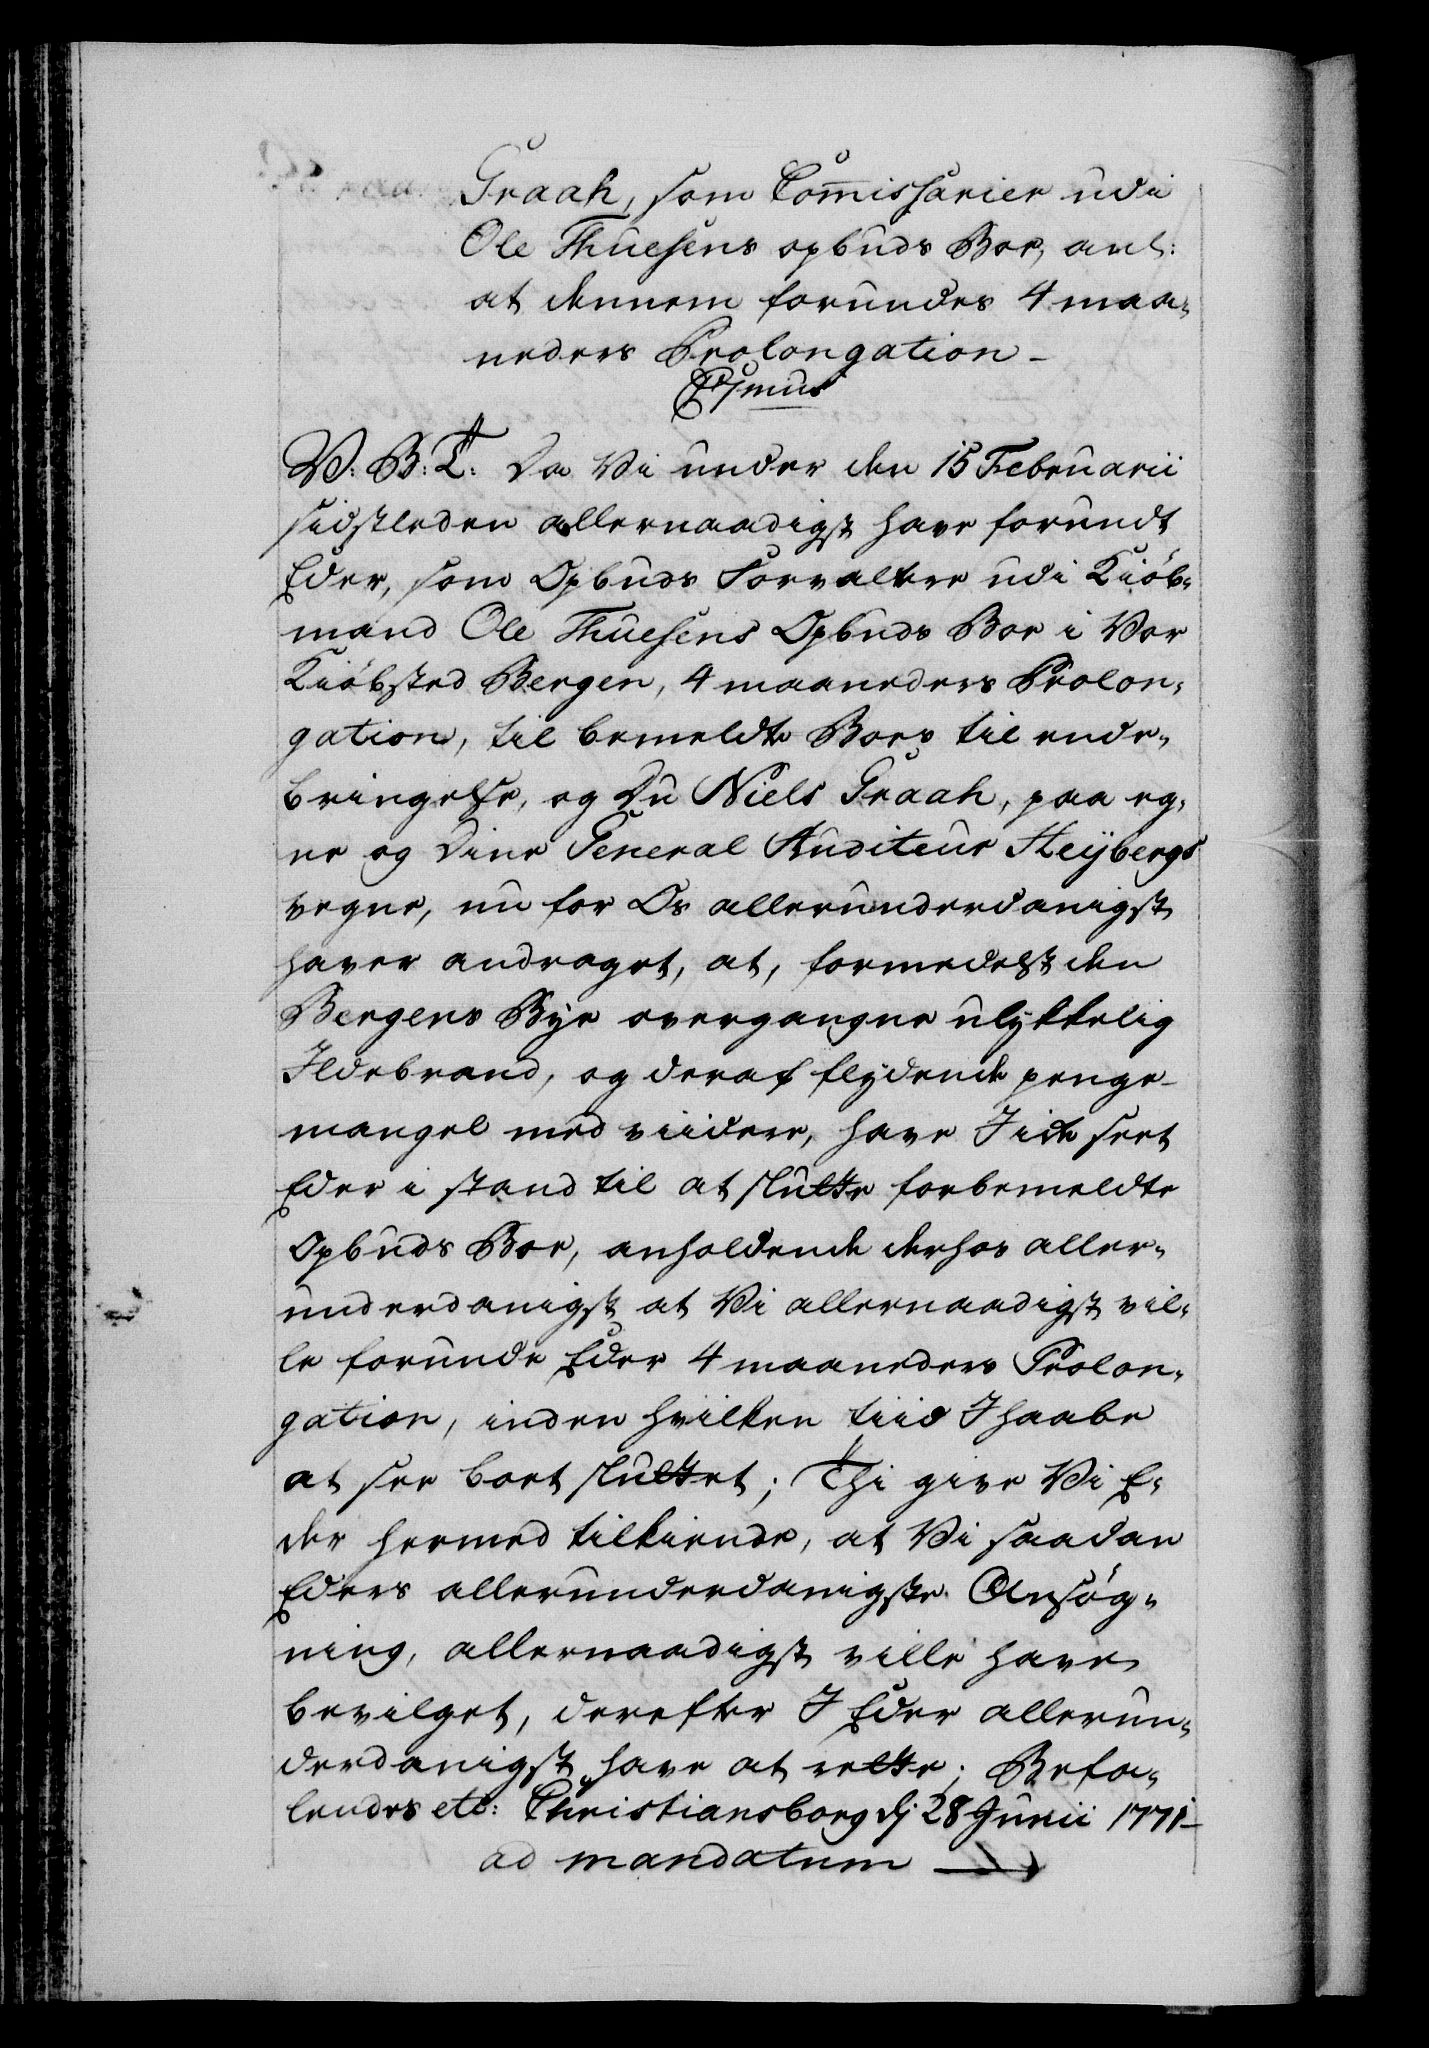 Graah, som Com̅issarier udi
Ole Thuesens opbuds Boe, anl:
at dennem forundes 4 maa-
neders Prolongation -
V: B: T: Da Vi under den 15 Februarii
sidstleden allernaadigst have forundt
Eder, som Opbuds Forvaltere udi Kiöb-
mand Ole Thuesens Opbuds Boe i Vor
Kiöbsted Bergen, 4 maaneders Prolon-
gation, til bemeldte Boes til ende-
bringelse, og Du Niels Graah, paa eg-
ne og Dine General Auditeur Heÿbergs
vegne, nu for Os allerunderdanigst
haver andraget, at, formedelst den
Bergens Bÿe overgangne ulÿkkelig
Ildebrand, og deraf flÿdende penge-
mangel med viidere, have I ide seet
Eder i stand til at slutte forbemeldte
Opbuds Boe, anholdende derhos aller-
underdanigst at Vi allernaadigst vil-
le forunde Eder 4 maaneders Prolon-
gation, inden hvilken tiid I haabe
at see boet sluttet; Thi give Vi E-
der hermed tilkiende, at Vi saadan
Eders allerunderdanigste Ansög-
ning, allernaadigst ville have
bevilget, derefter I Eder allerun-
derdanigst have at rette; Befa-
lendes etc: Christiansborg dj 28 Junii 1771-
ad mandatum